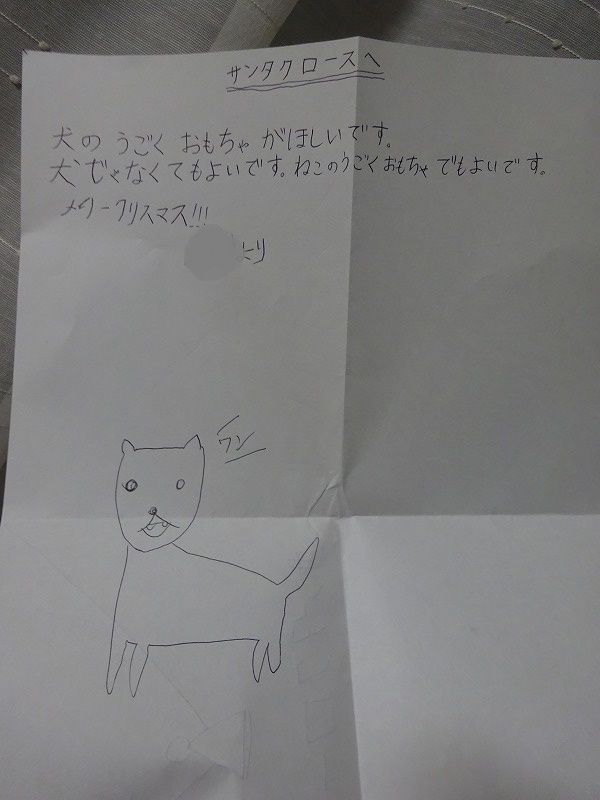 サンタクロースへ
犬のうごくおもちゃがほしいです。
犬じゃなくてもよいです。ねこのうごくおもちゃでもよいです。
メリークリスマス!!!
より
ワン